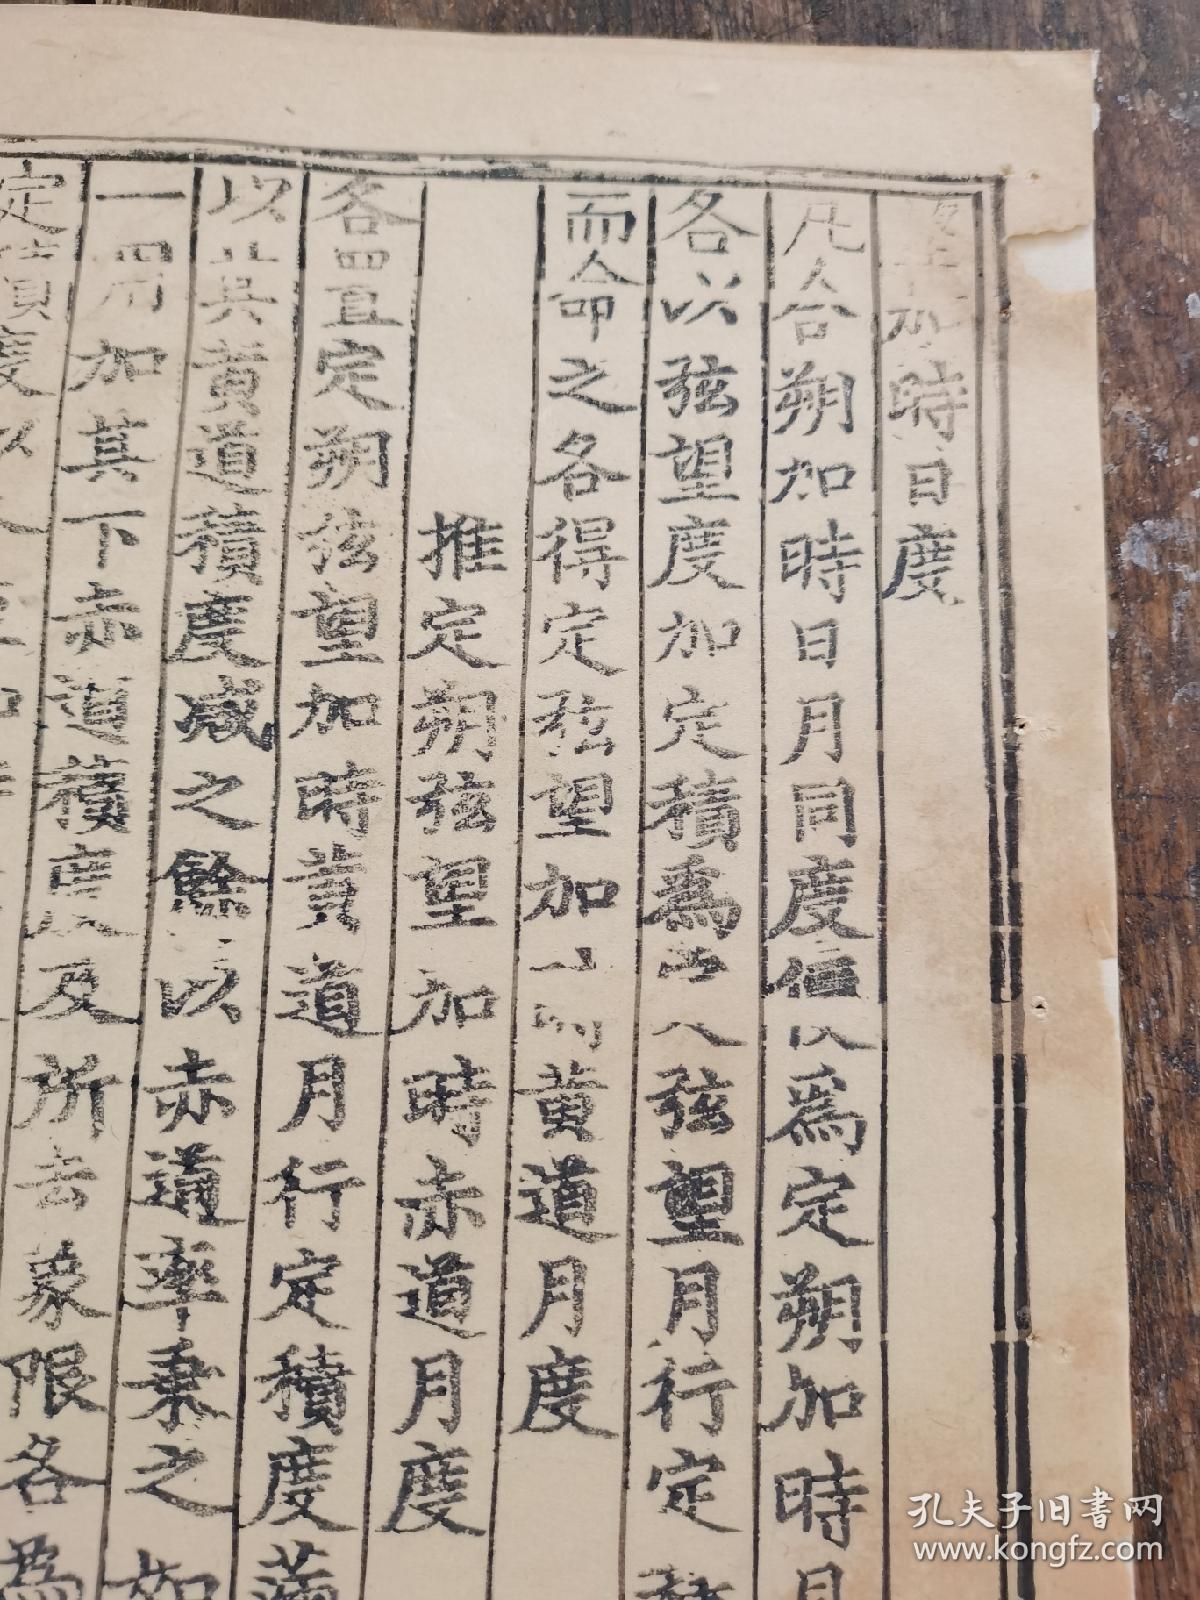 加時日度
凡合朔加時日月同度便以為定朔加時日
各以弦望度加定積為定弦望月行定積
而命之各得定弦望加時黃道月度
推定朔弦望加時赤道月度
各置定朔弦望加時黃道月行定積度滿
以其黃道積度減之餘以赤道率乘之如
一用加其下赤道積度及所去象限各為
定積度以
孔夫子旧书网
www.kongfz.com